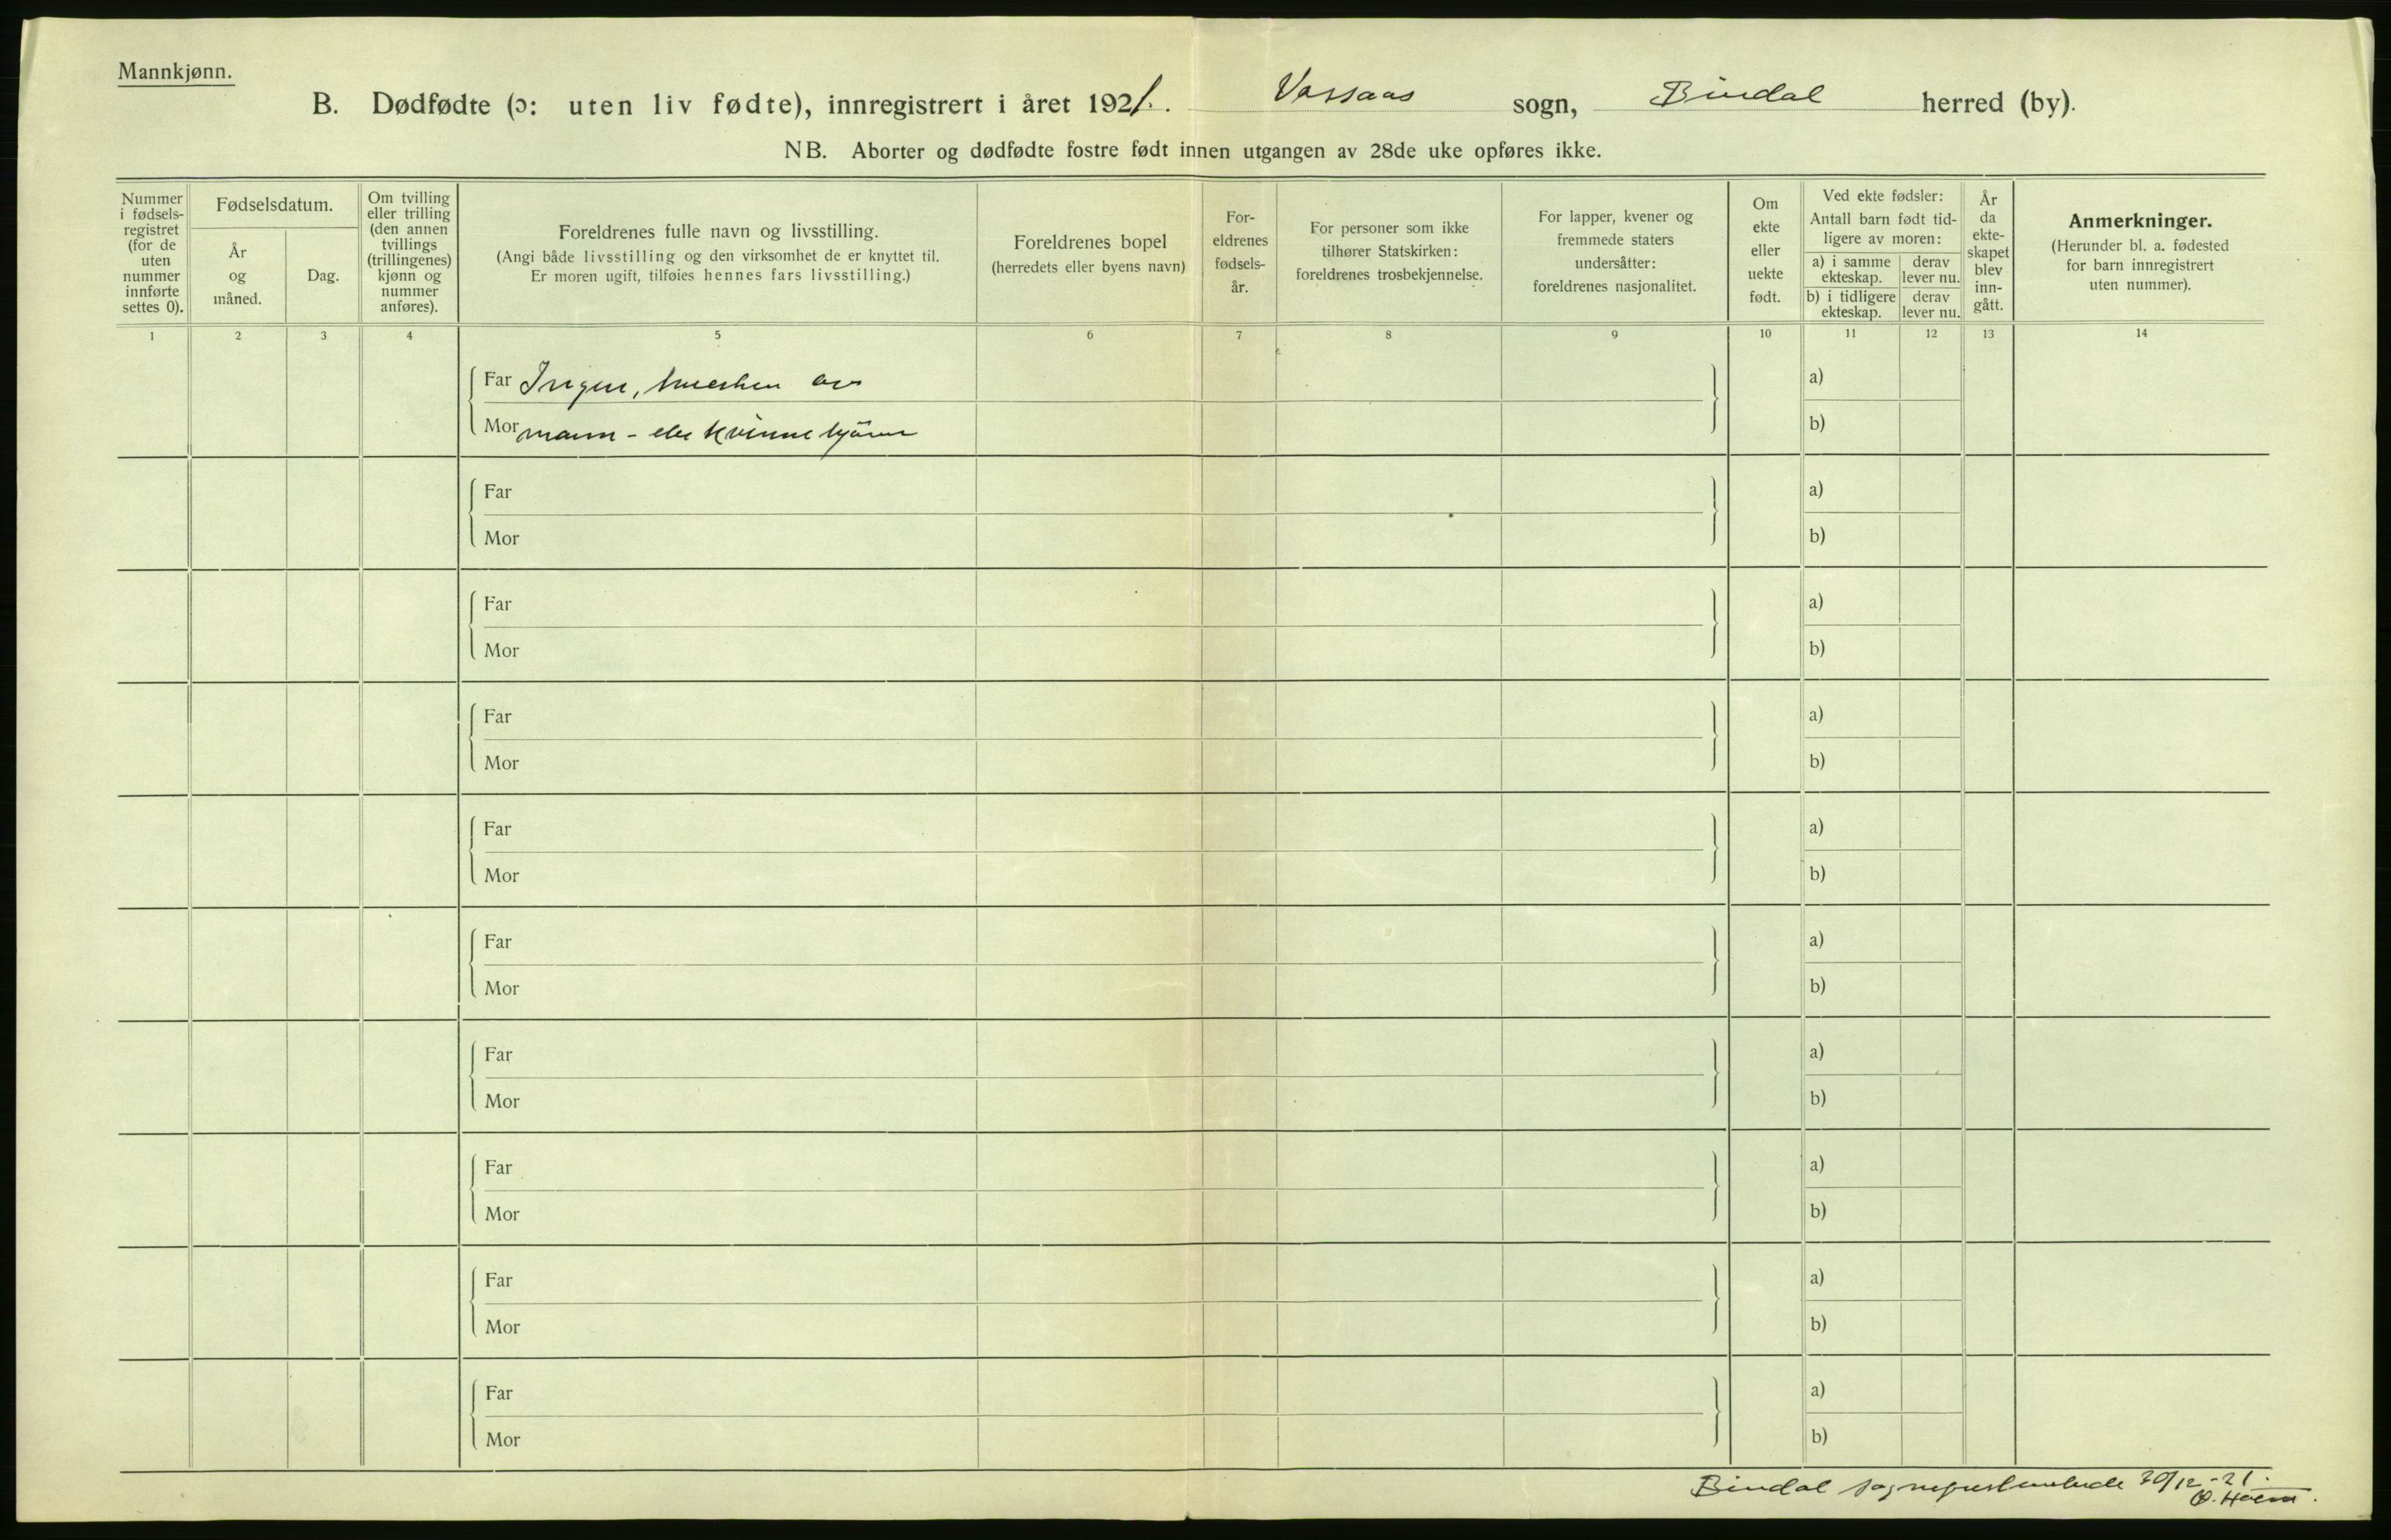 Mannkjønn.
B. Dødfødte (ɔ: uten liv fødte), innregistrert i året 1921. Vassaas sogn, Bindal herred (by).
NB. Aborter og dødfødte fostre født innen utgangen av 28de uke opføres ikke.
Nummer
i fødsels-
registret
(for de
uten
nummer
innførte
settes 0).
Fødselsdatum.
År
og
måned.
Dag.
Om tvilling
eller trilling
(den annen
tvillings
(trillingenes)
kjønn og
nummer
anføres).
Foreldrenes fulle navn og livsstilling.
(Angi både livsstilling og den virksomhet de er knyttet til.
Er moren ugift, tilføies hennes fars livsstilling.)
Foreldrenes bopel
(herredets eller byens navn)
For-
eldrenes
fødsels-
år.
For personer som ikke
tilhører Statskirken:
foreldrenes trosbekjennelse.
For lapper, kvener og
fremmede staters
undersåtter:
foreldrenes nasjonalitet.
Om
ekte
eller
uekte
født.
Ved ekte fødsler:
Antall barn født tid-
ligere av moren:
a) i samme
ekteskap.
derav
lever nu.
b) i tidligere
ekteskap.
derav
lever nu.
År
da
ekte-
skapet
blev
inn-
gått.
Anmerkninger.
(Herunder bl. a. fødested
for barn innregistrert
uten nummer).
1 2 3 4 5 6 7 8 9 10 11 12 13 14
Far Ingen, hverken av a)
Mor mann- eller kvinnekjønn b)
Far a)
Mor b)
Far a)
Mor b)
Far a)
Mor b)
Far a)
Mor b)
Far a)
Mor b)
Far a)
Mor b)
Far a)
Mor b)
Far a)
Mor b)
Far a)
Mor b)
Bindal sogneprestembede 30/12-21.
O. Hoem.